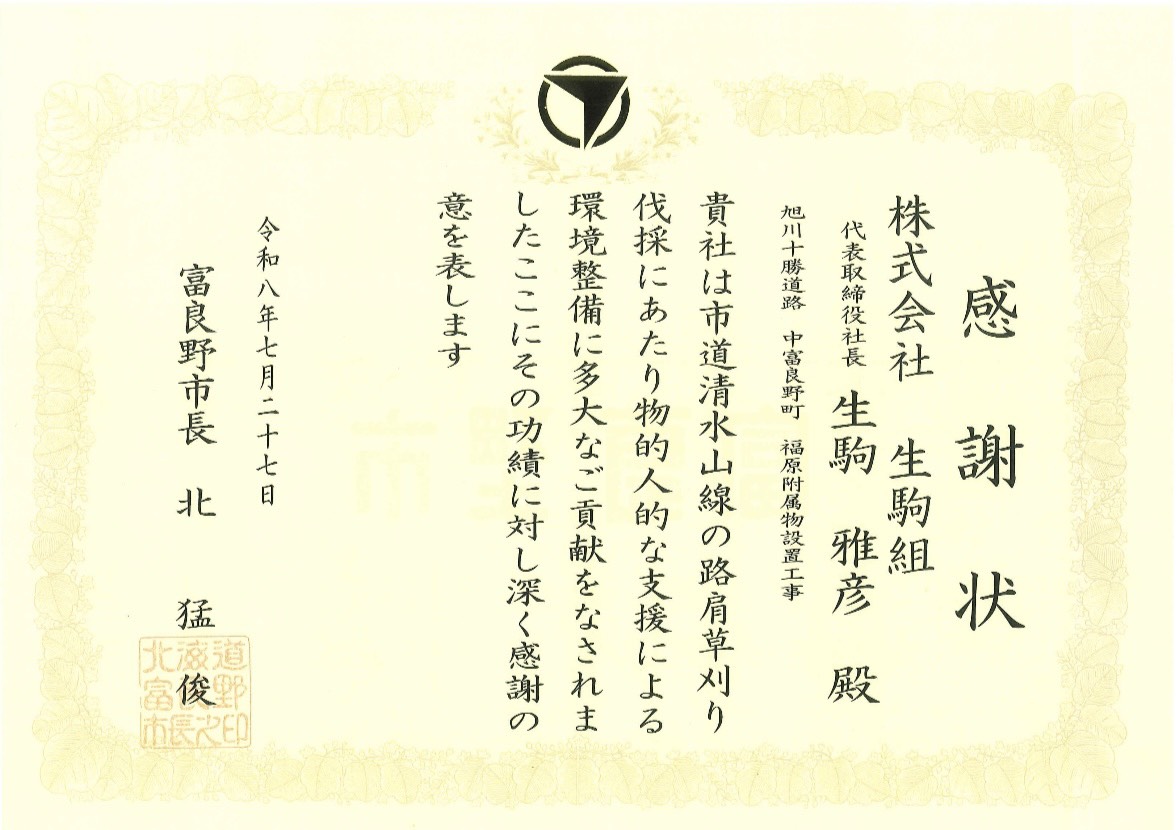 感謝状
株式会社 生駒組
代表取締役社長 生駒 雅彦 殿
旭川十勝道路 中富良野町 福原附属物設置工事
貴社は市道清水山線の路肩草刈り
伐採にあたり物的人的な支援による
環境整備に多大なご貢献をなされま
したここにその功績に対し深く感謝の
意を表します
令和八年七月二十七日
富良野市長 北 猛俊
富良野市
北海道富良野市長之印